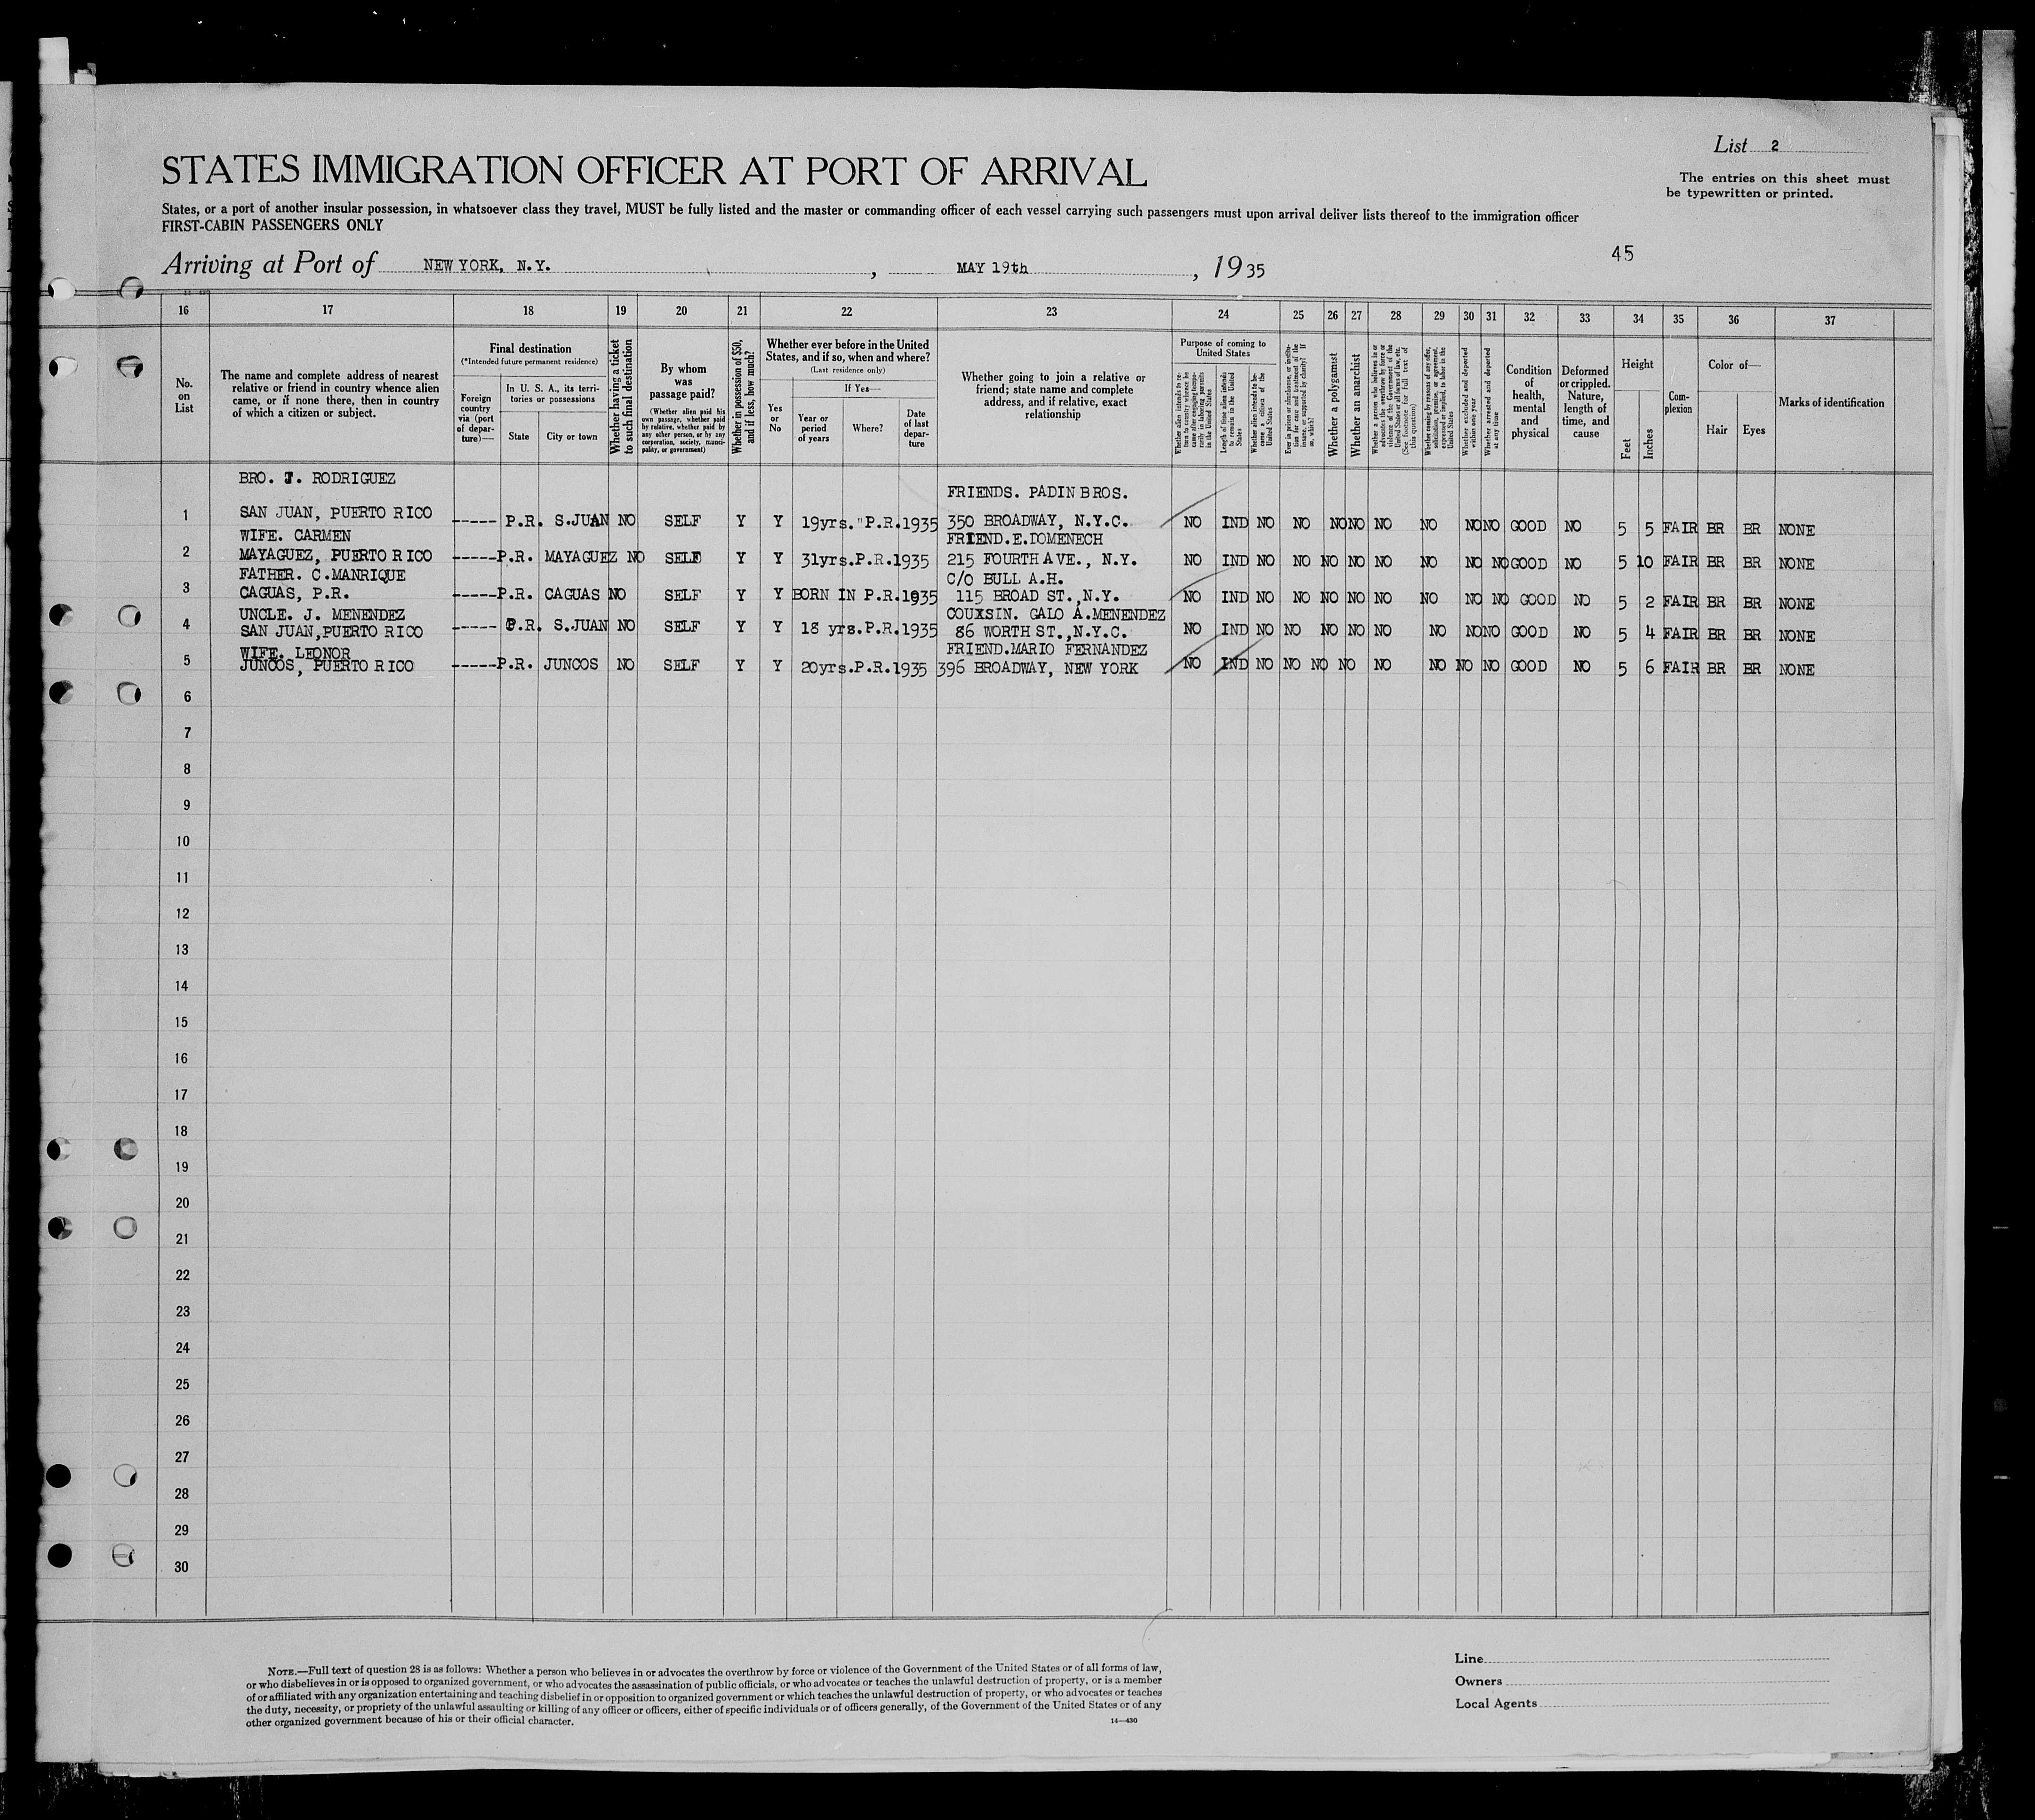 List 2
The entries on this sheet must
be typewritten or printed.
STATES IMMIGRATION OFFICER AT PORT OF ARRIVAL
States, or a port of another insular possession, in whatsoever class they travel, MUST be fully listed and the master or commanding officer of each vessel carrying such passengers must upon arrival deliver lists thereof to the immigration officer
FIRST-CABIN PASSENGERS ONLY
45
Arriving at Port of NEW YORK, N.Y. , MAY 19th , 1935
16 17 18 19 20 21 22 23 24 25 26 27 28 29 30 31 32 33 34 35 36 37
No.
on
List
The name and complete address of nearest
relative or friend in country whence alien
came, or if none there, then in country
of which a citizen or subject.
Final destination
(*Intended future permanent residence)
Foreign
country
via (port
of depar-
ture)—
In U. S. A., its terri-
tories or possessions
State
City or town
Whether having a ticket
to such final destination
By whom
was
passage paid?
(Whether alien paid his
own passage, whether paid
by relative, whether paid by
any other person, or by any
corporation, society, munici-
pality, or government)
Whether in possession of $50,
and if less, how much?
Whether ever before in the United
States, and if so, when and where?
(Last residence only)
Yes
or
No
If Yes—
Year or
period
of years
Where?
Date
of last
depar-
ture
Whether going to join a relative or
friend; state name and complete
address, and if relative, exact
relationship
Purpose of coming to
United States
Whether alien intends to re-
turn to country whence he
came after engaging tempo-
rarily in laboring pursuits
in the United States
Length of time alien intends
to remain in the United
States
Whether alien intends to be-
come a citizen of the
United States
Ever in prison or almshouse, or institu-
tion for care and treatment of the
insane, or supported by charity? If
so, which?
Whether a polygamist
Whether an anarchist
Whether a person who believes in or
advocates the overthrow by force or
violence of the Government of the
United States or all forms of law, etc.
(See footnote for full text of
this question)
Whether coming by reason of any offer,
solicitation, promise, or agreement,
expressed or implied, to labor in the
United States
Whether excluded and deported
within one year
Whether arrested and deported
at any time
Condition
of
health,
mental
and
physical
Deformed
or crippled.
Nature,
length of
time, and
cause
Height
Feet
Inches
Com-
plexion
Color of—
Hair
Eyes
Marks of identification
BRO. J. RODRIGUEZ
FRIENDS. PADIN BROS.
1 SAN JUAN, PUERTO RICO ----- P.R. S.JUAN NO SELF Y Y 19yrs."P.R.1935 350 BROADWAY, N.Y.C. NO IND NO NO NO NO NO NO NO NO GOOD NO 5 5 FAIR BR BR NONE
WIFE. CARMEN FRIEND.E.DOMENECH
2 MAYAGUEZ, PUERTO RICO -----P.R. MAYAGUEZ NO SELF Y Y 31yrs.P.R.1935 215 FOURTH AVE., N.Y. NO IND NO NO NO NO NO NO NO NO GOOD NO 5 10 FAIR BR BR NONE
FATHER. C.MANRIQUE C/O BULL A.H.
3 CAGUAS, P.R. -----P.R. CAGUAS NO SELF Y Y BORN IN P.R.1935 115 BROAD ST.,N.Y. NO IND NO NO NO NO NO NO NO NO GOOD NO 5 2 FAIR BR BR NONE
UNCLE. J. MENENDEZ COUXSIN. GALO A.MENENDEZ
4 SAN JUAN,PUERTO RICO ----- P.R. S.JUAN NO SELF Y Y 18 yrs.P.R.1935 86 WORTH ST.,N.Y.C. NO IND NO NO NO NO NO NO NO NO GOOD NO 5 4 FAIR BR BR NONE
WIFE. LEONOR FRIEND.MARIO FERNANDEZ
5 JUNCOS, PUERTO RICO -----P.R. JUNCOS NO SELF Y Y 20yrs.P.R.1935 396 BROADWAY, NEW YORK NO IND NO NO NO NO NO NO NO NO GOOD NO 5 6 FAIR BR BR NONE
6
7
8
9
10
11
12
13
14
15
16
17
18
19
20
21
22
23
24
25
26
27
28
29
30
NOTE.—Full text of question 28 is as follows: Whether a person who believes in or advocates the overthrow by force or violence of the Government of the United States or of all forms of law,
or who disbelieves in or is opposed to organized government, or who advocates the assassination of public officials, or who advocates or teaches the unlawful destruction of property, or is a member
of or affiliated with any organization entertaining and teaching disbelief in or opposition to organized government or which teaches the unlawful destruction of property, or who advocates or teaches
the duty, necessity, or propriety of the unlawful assaulting or killing of any officer or officers, either of specific individuals or of officers generally, of the Government of the United States or of any
other organized government because of his or their official character.
14—430
Line
Owners
Local Agents